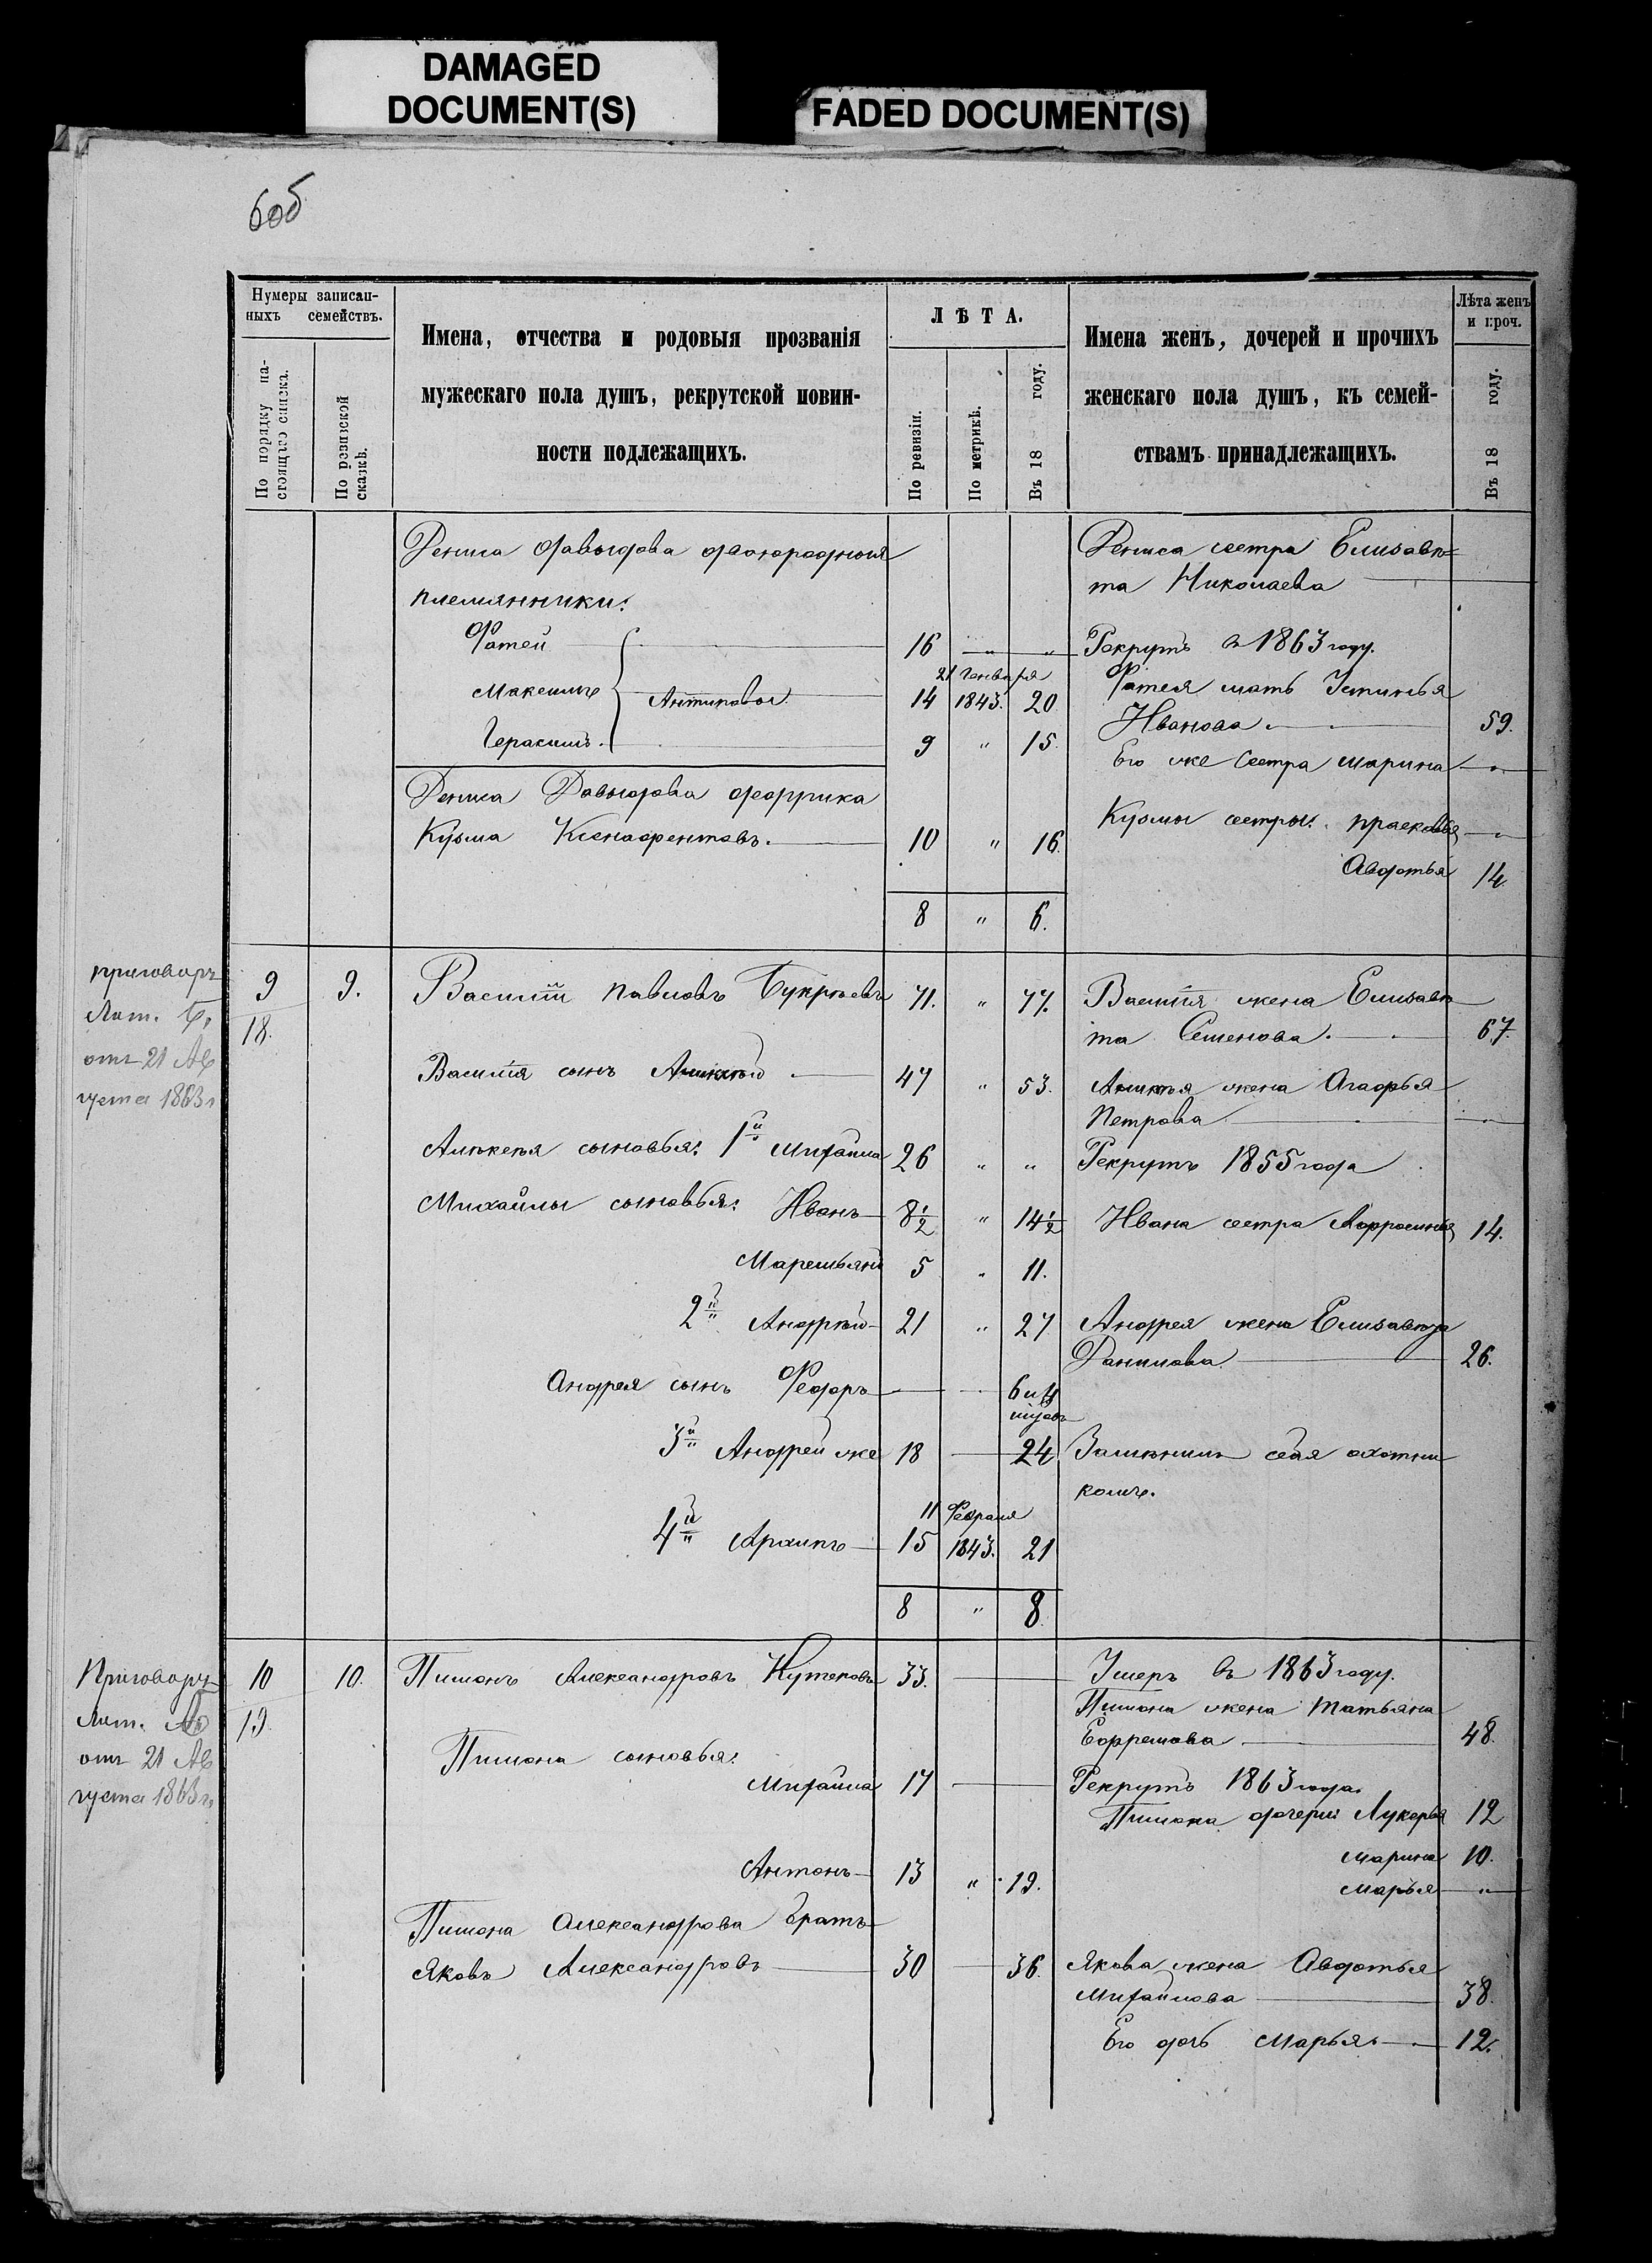 DAMAGED
DOCUMENT(S)
FADED DOCUMENT(S)
6об
Нумеры записан-
ныхъ семействъ.
По порядку на-
стоящаго списка.
По ревизской
сказкѣ.
Имена, отчества и родовыя прозванія
мужескаго пола душъ, рекрутской повин-
ности подлежащихъ.
ЛѢТА.
По ревизіи.
По метрикѣ.
Въ 18 году.
Имена женъ, дочерей и прочихъ
женскаго пола душъ, къ семей-
ствамъ принадлежащихъ.
Лѣта женъ
и проч.
Въ 18 году.
Дениса Давыдова двоюродныя
племянники:
Фатей 16 " "
21 Генваря
Максимъ Антиповы 14 1843. 20
Герасимъ. 9 " 15.
Дениса Давыдова
Кузьма Ксенофонтовъ. 10 " 16.
8 " 6.
Дениса сестра Елисаве=
та Николаева
Рекрутъ въ 1863 году.
Фатея мать Устинья
Иванова. 59.
Его же сестра Марина "
Кузьмы сестры: Прасковья "
Авдотья 14.
приговоръ
Лит. Б,
отъ 21 Ав
густа 1863 г
9 9.
18.
Василій Павловъ Букрѣевъ 71. " 77.
Василія сынъ Алексѣй 47 " 53.
Алексѣя сыновья: 1й Михайла 26 " "
Михайлы сыновья: Иванъ 8½ " 14½
5 " 11.
2й Андрѣй 21 " 27
Андрея сынъ Федоръ 6 и 4
3й Андрей же 18 24
11 Февраля
4й Архипъ 15 1843. 21
8 " 8.
Василія жена Елисаве
та Семенова. 67.
Алексѣя жена Агафья
Петрова "
Рекрутъ 1855 года
Ивана сестра Афросинья 14.
Андрея жена Елисавета
Данилова 26.
Замѣнилъ себя охотни
комъ.
Приговору
Лит.
отъ 21 Ав
густа 1863 г.
10 10.
19.
Пимонъ Александровъ Кутековъ 33.
Пимона сыновья:
Михайла 17
Антонъ 13 " 19.
Пимона Александрова братъ
Яковъ Александровъ 30 36.
Умеръ въ 1863 году.
Пимона жена Татьяна
Ефремова 48.
Рекрутъ 1863 года.
Пимона дочери: Лукерья 12
Марина 10.
Марья "
Якова жена Авдотья
Михайлова 38.
Его дочь Марья. 12.